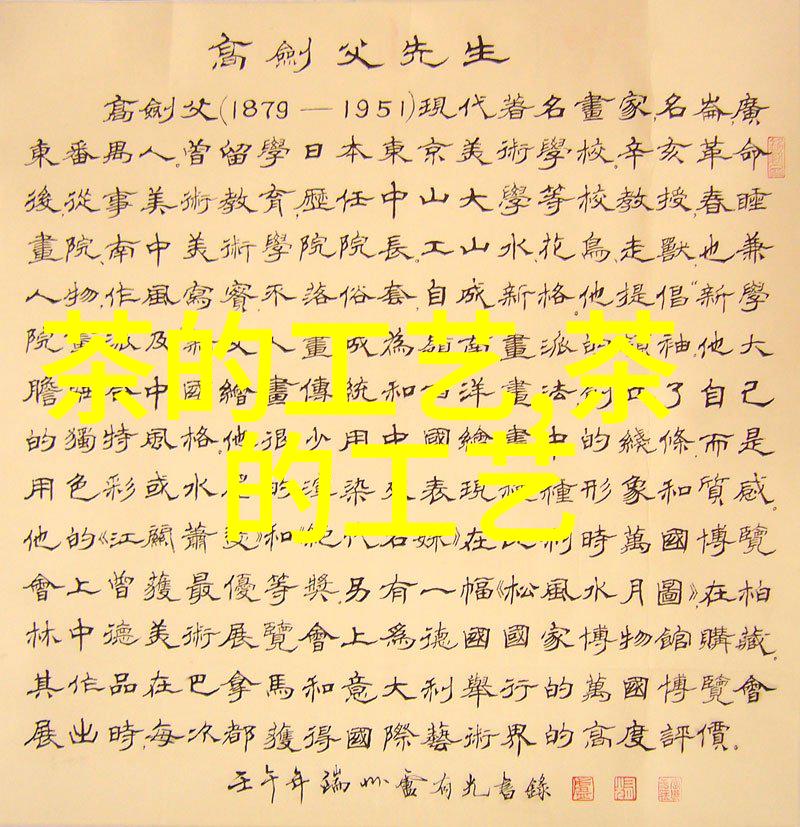 高劍父先生
高劍父(1879—1951)現代著名畫家,名崙,廣
東番禺人。曾留學日本東京美術學校。辛亥革命
後,從事美術教育,歷任中山大學等校教授,春睡
畫院、南中美術學院院長。工山水、花鳥、走獸,也兼
人物,作風寫實,不落俗套,自成新格。他提倡“新學
院 派及 文人畫成為嶺南畫派的領袖。他大
膽 中國繪畫傳統和 洋畫法,創 了自己
的獨特風格。他很少用中國繪畫中的綫條,而是
用色彩或水 的渲染 表現 種形象和質感。
他的《江關蕭 》和《絕代名姝》在比利時萬國博覽
會上曾獲最優等獎。另有一幅《松風水月圖》,在柏
林中德美術展覽會上為德國國家博物館購藏。
其作品在巴拿馬和意大利舉行的萬國博覽會
展出時,每次都獲得國際藝術界的高度評價。
壬午年 瑞州盧有光書錄
茶的工艺,茶
的工艺